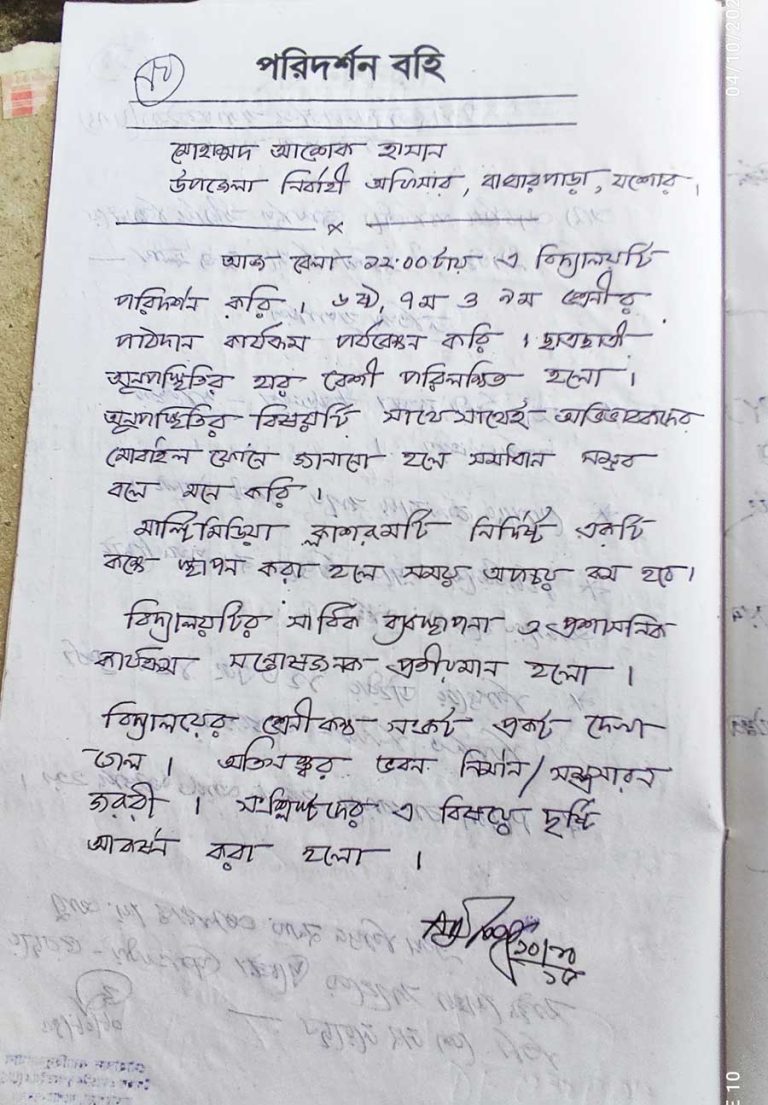 পরিদর্শন বহি
মোহাম্মদ আশেক হাসান
উপজেলা নির্বাহী অফিসার, বাঘারপাড়া, যশোর।
আজ বেলা ১২:০০টায় এ বিদ্যালয়টি
পরিদর্শন করি। ৬ষ্ঠ, ৭ম ও ৯ম শ্রেণীর
পাঠদান কার্যক্রম পর্যবেক্ষন করি। ছাত্রছাত্রী
অনুপস্থিতির হার বেশী পরিলক্ষিত হলো।
অনুপস্থিতির বিষয়টি সাথেসাথেই অভিভাবকদের
মোবাইল ফোনে জানানো হলে সমাধান সম্ভব
বলে মনে করি।
মাল্টিমিডিয়া ক্লাশরুমটি নির্দিষ্ট একটি
কক্ষে স্থাপন করা হলে সময় অপচয় কম হবে।
বিদ্যালয়টির সার্বিক ব্যবস্থাপনা ও প্রশাসনিক
কার্যক্রম সন্তোষজনক প্রতীয়মান হলো।
বিদ্যালয়ের শ্রেনীকক্ষ সংকট প্রকট দেখা
গেল। অতিসত্ত্বর ভবন নির্মান/সম্প্রসারন
জরুরী। সংশ্লিষ্টদের এ বিষয়ে দৃষ্টি
আকর্ষন করা হলো।
04/10/202
E 10